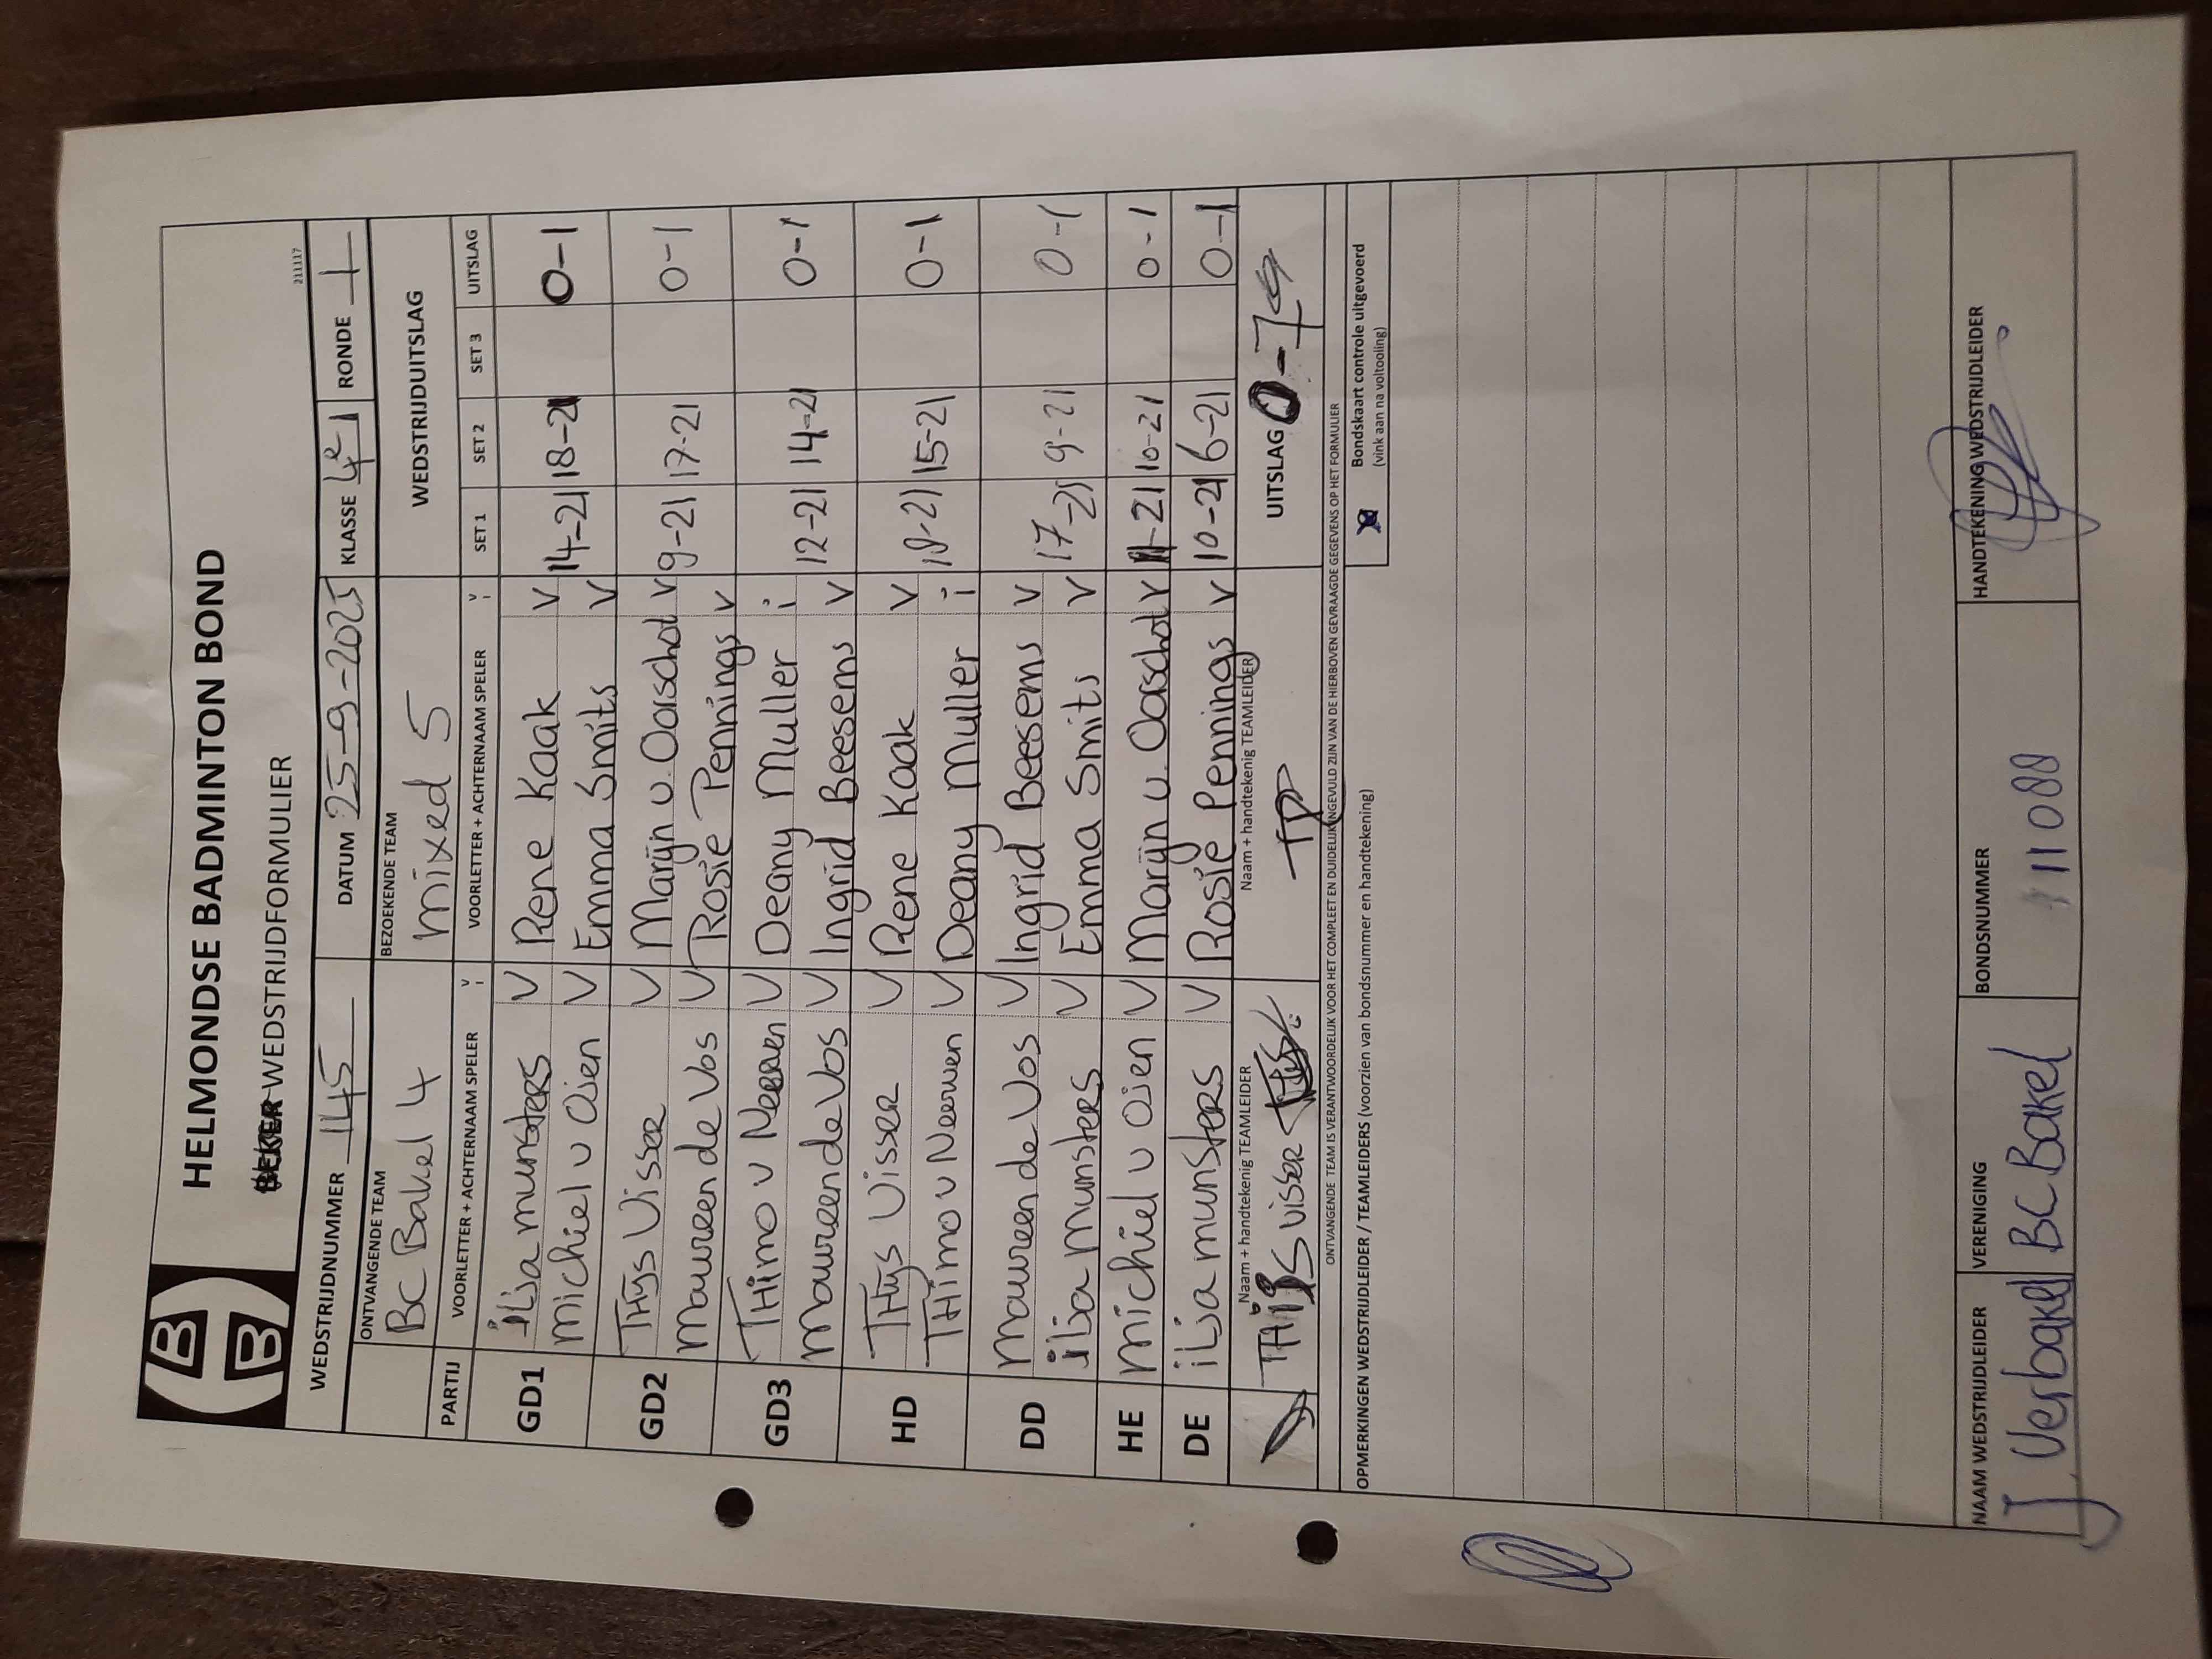 HELMONDSE BADMINTON BOND
WEDSTRIJDFORMULIER
211117
WEDSTRIJDNUMMER 145 DATUM 25-9-2025 KLASSE 4e1 RONDE 1
ONTVANGENDE TEAM BEZOEKENDE TEAM WEDSTRIJDUITSLAG
BC Bakel 4 mixed 5
PARTIJ VOORLETTER + ACHTERNAAM SPELER V i VOORLETTER + ACHTERNAAM SPELER V i SET 1 SET 2 SET 3 UITSLAG
GD1 ilja munsters V Rene Kaak V 14-21 18-21 0-1
michiel v Oien V Emma Smits V
GD2 THijs Visser V Marijn v. Oorschot V 9-21 17-21 0-1
maureen de Vos V Rosie Pennings V
GD3 THimo v Neerven V Deany Muller i 12-21 14-21 0-1
maureen de Vos V Ingrid Beesems V
HD THijs Visser V Rene Kaak V 15-21 0-1
THimo v Neerven V Deany Muller i
DD maureen de Vos V Ingrid Beesems V 17-21 9-21 0-1
ilja munsters V Emma Smits V
HE michiel v Oien V Marijn v. Oorschot V 11-21 10-21 0-1
DE ilja munsters V Rosie Pennings V 10-21 6-21 0-1
Naam + handtekenig TEAMLEIDER Naam + handtekenig TEAMLEIDER UITSLAG 0-7
THijs Visser
ONTVANGENDE TEAM IS VERANTWOORDELIJK VOOR HET COMPLEET EN DUIDELIJK INGEVULD ZIJN VAN DE HIERBOVEN GEVRAAGDE GEGEVENS OP HET FORMULIER
OPMERKINGEN WEDSTRIJDLEIDER / TEAMLEIDERS (voorzien van bondsnummer en handtekening)
Bondskaart controle uitgevoerd
(vink aan na voltooling)
NAAM WEDSTRIJDLEIDER VERENIGING BONDSNUMMER HANDTEKENING WEDSTRIJDLEIDER
J. Verbakel BC Bakel 11088